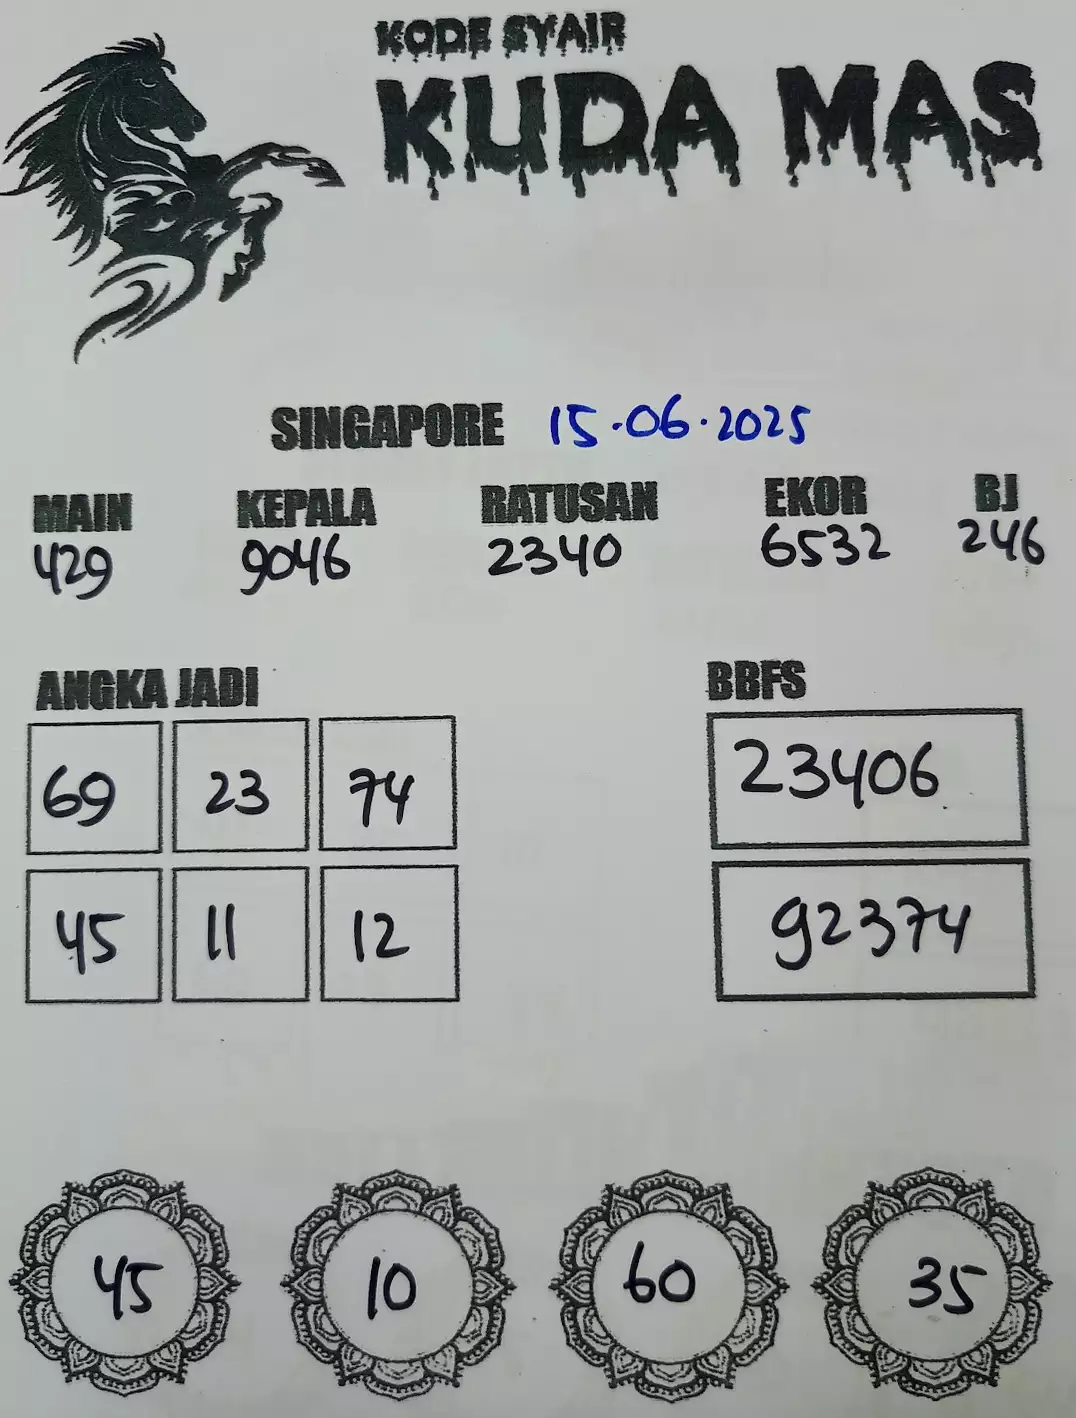 KODE SYAIR
KUDA MAS
SINGAPORE 15.06.2025
MAIN KEPALA RATUSAN EKOR BJ
429 9046 2340 6532 246
ANGKA JADI BBFS
69 23 74 23406
45 11 12 92374
45 10 60 35